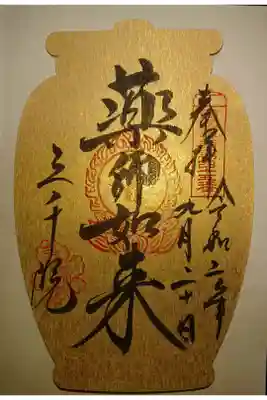 奉拝
令和二年
九月二十日
薬師如来
三千院